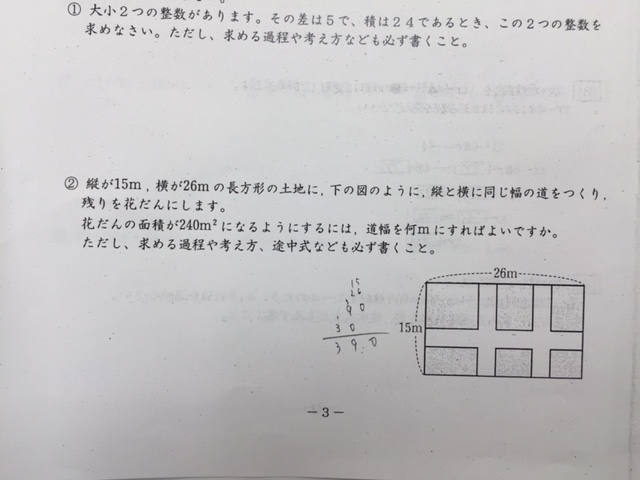 ① 大小２つの整数があります。その差は５で，積は２４であるとき，この２つの整数を
求めなさい。ただし，求める過程や考え方なども必ず書くこと。
② 縦が15m，横が26mの長方形の土地に，下の図のように，縦と横に同じ幅の道をつくり，
残りを花だんにします。
花だんの面積が240m²になるようにするには，道幅を何mにすればよいですか。
ただし、求める過程や考え方、途中式なども必ず書くこと。
26m
15
26
90
30
390
15m
－3－